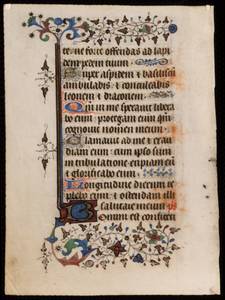 te ne forte offendas ad lapi
dem pedem tuum
Super aspidem et basiliscū
ambulabis et conculcabis
leonem et draconem
Qm in me speravit libera
bo eum protegam eum qm
cognovit nomen meum
Clamavit ad me et exau
diam eum cum ipso sum
in tribulatione eripiam eū
et glorificabo eum
Longitudine dierum re
plebo eum et ostendam illi
salutare meum
Bonum est confiteri